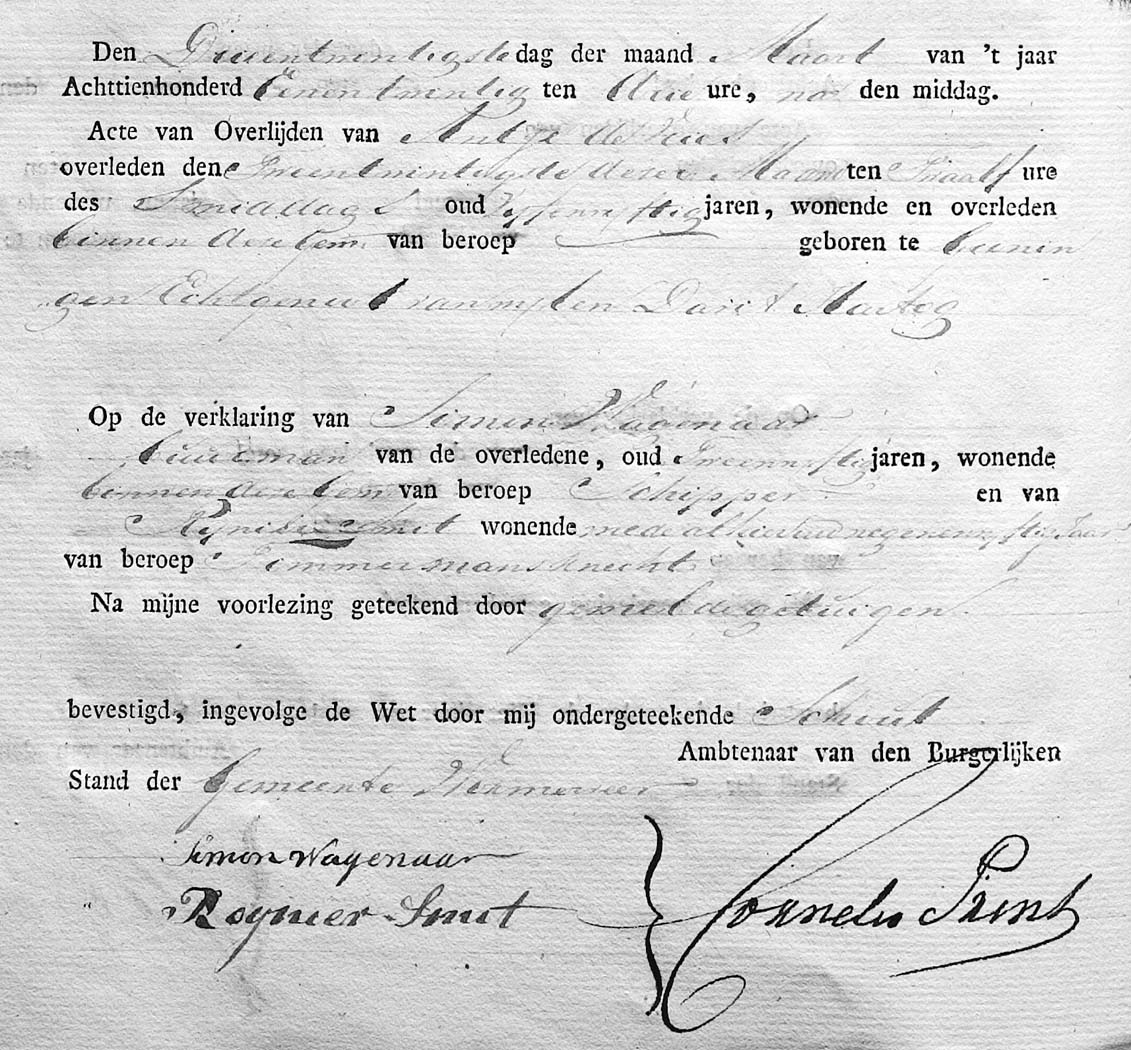 Den Drieentwintigste dag der maand Maart van 't jaar
Achttienhonderd Eenentwintig ten drie ure, na den middag.
Acte van Overlijden van Antje de
overleden den Tweentwintigste dezer Maand ten Twaalf ure
des Smiddags oud Vyfenvyftig jaren, wonende en overleden
binnen deze Gem. van beroep geboren te
gen Echtgenoot van wylen David Hartog
Op de verklaring van Simon Wagenaar
buurman van de overledene, oud Tweenvyftig jaren, wonende
binnen deze Gem van beroep Schipper en van
Smit wonende mede alhier oud negenenvyftig Jaar
van beroep Timmermansknecht
Na mijne voorlezing geteekend door gemelde getuigen
bevestigd, ingevolge de Wet door mij ondergeteekende Schout
Ambtenaar van den Burgerlijken
Stand der Gemeente Wormerveer
Simon Wagenaar
Reynier Smit
Cornelis Prins